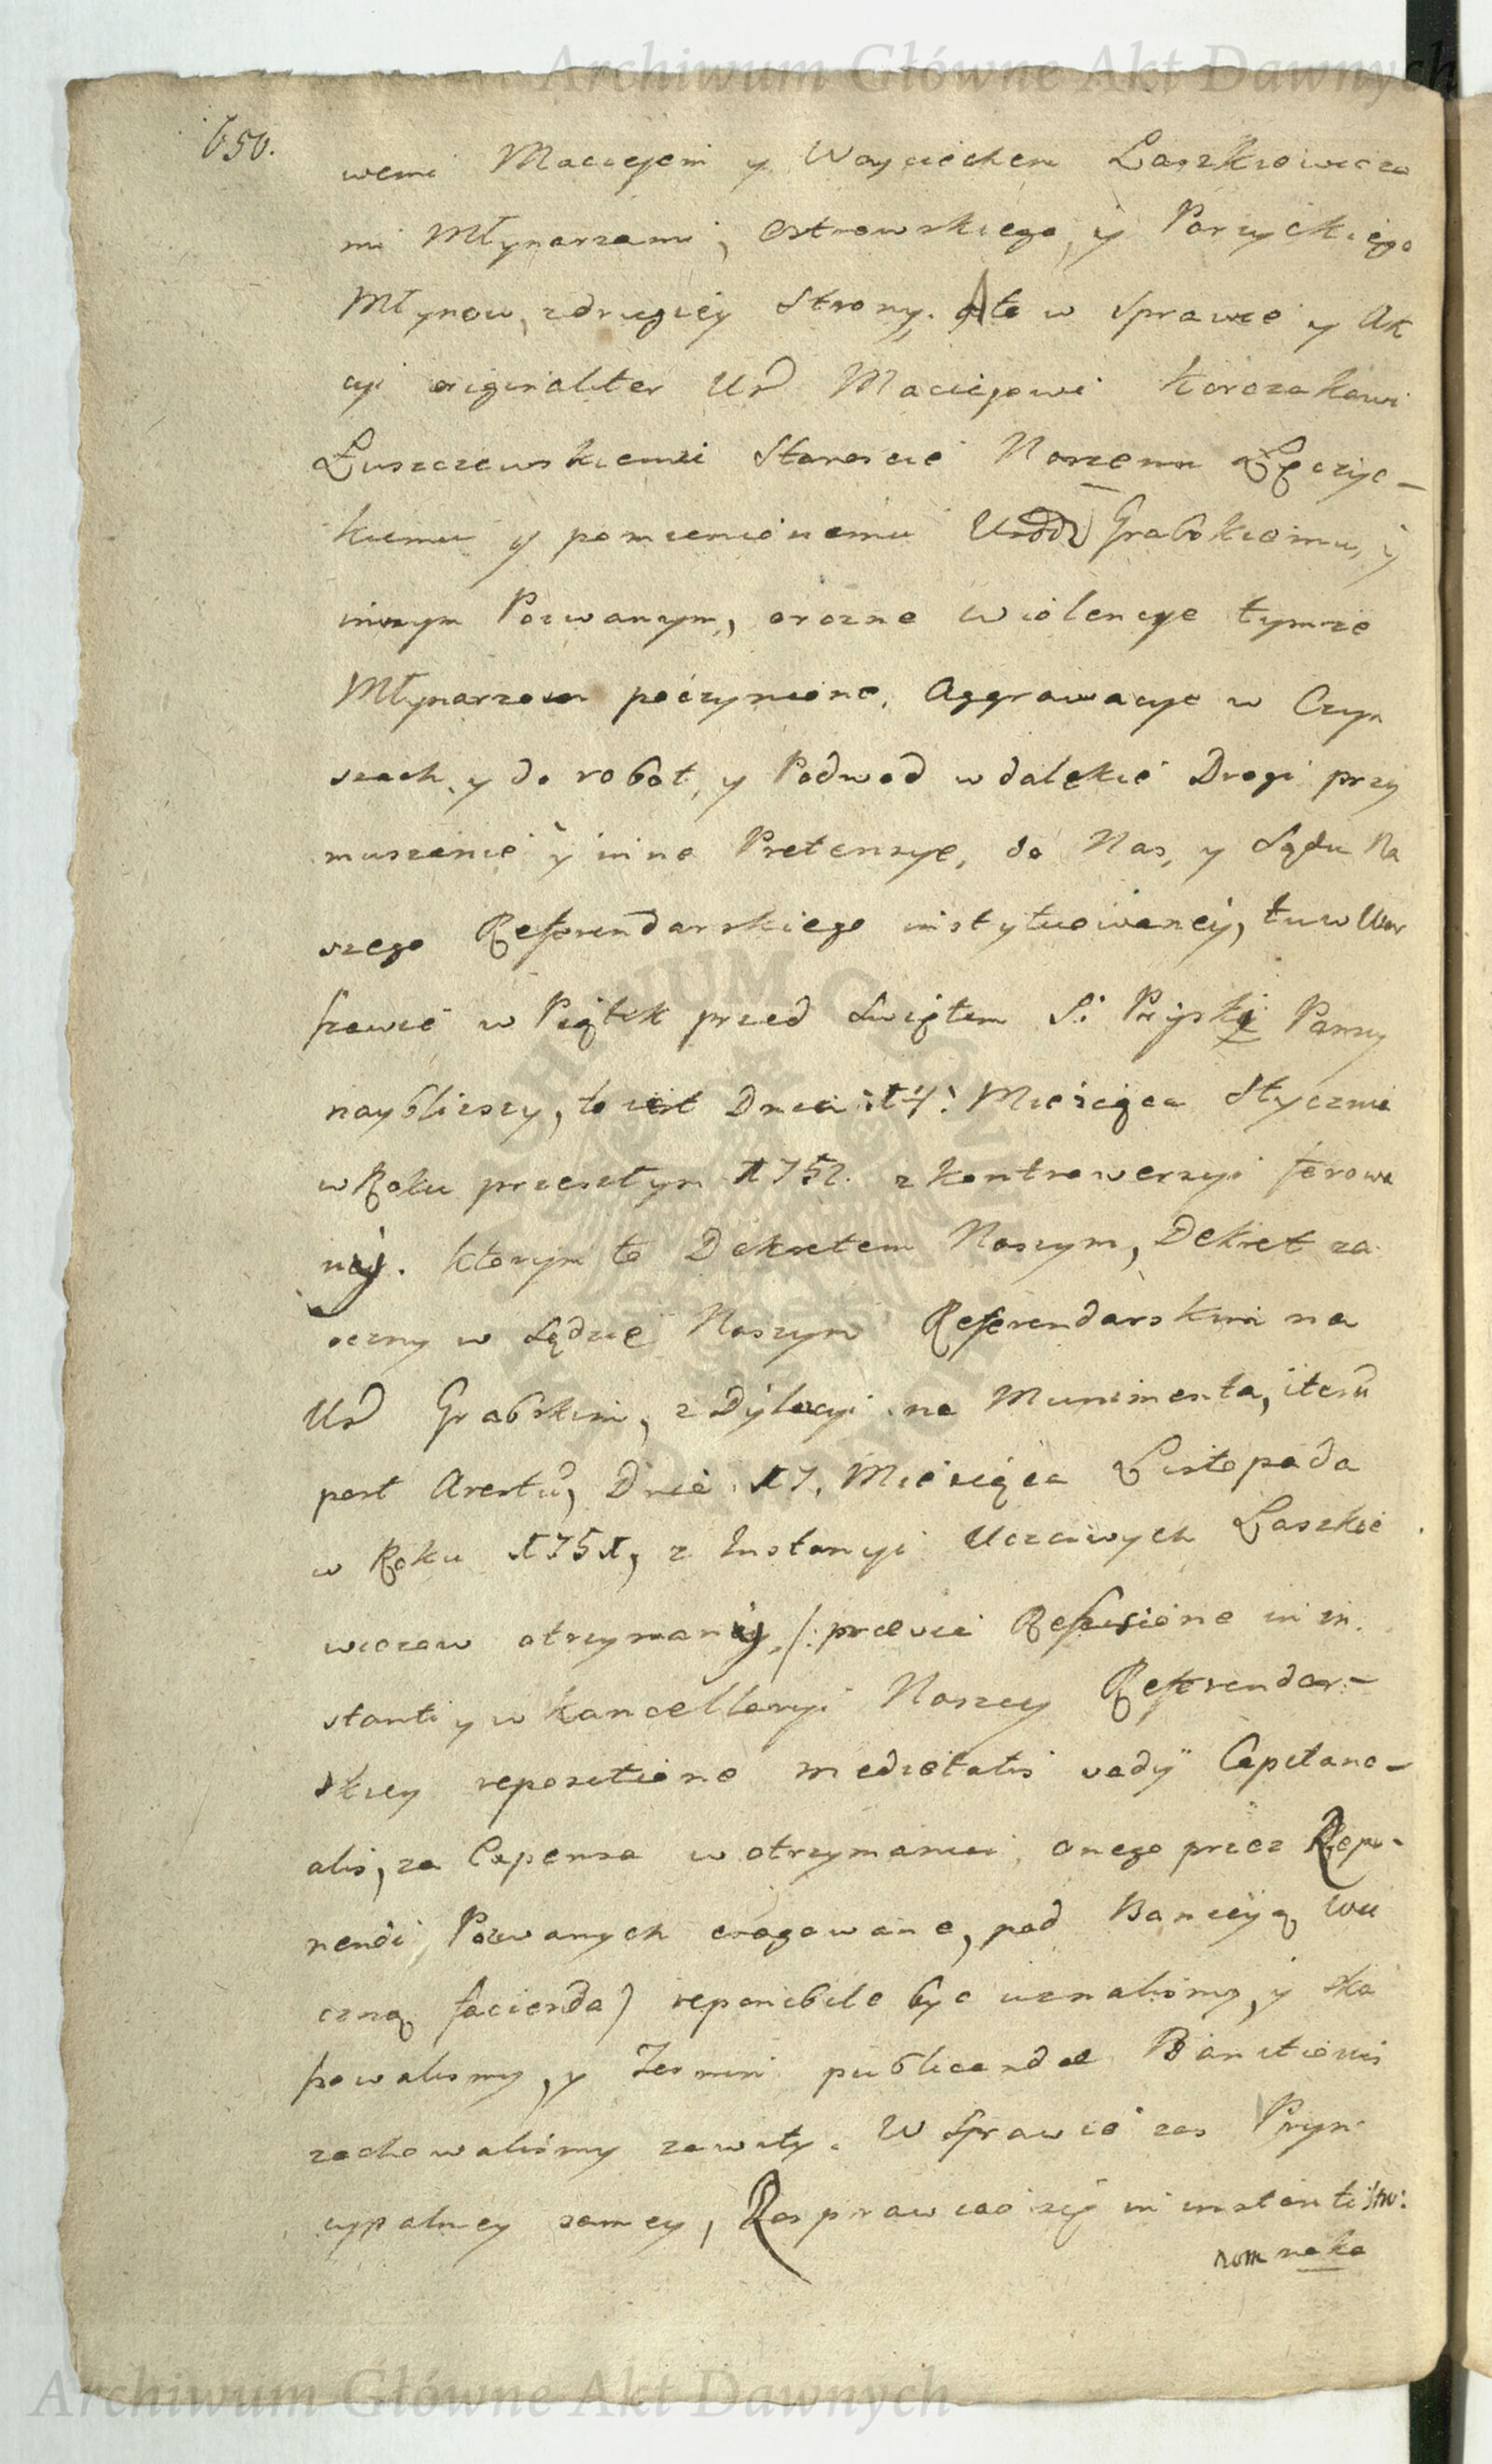 Archiwum Główne Akt Dawnych
650.
wemi Maciejem y Woyciechem Laszkiowicza
mi Młynarzami, Ostrowskiego, y Parzyckiego
Młynow, z drugiey Strony. A to w Sprawie y Ak
cyi originaliter Ur. Maciejowi Korczakowi
Łuszczewskiemu Staroscie Naszemu Łęczyc-
kiemu y pomienionemu Urodz Grabskiemu, y
innym Pozwanym, o rozne wiolencye tymze
Młynarzom poczynione, Aggrawacye w Czyn
szach, y do robot, y Podwod w dalekie Drogi przy
muszenie y inne Pretensye, do Nas, y Sądu Na
szego Referendarskiego instytuowaney, tu w War
szawie w Piątek przed Swiętem S: Pryski Panny
naybliszy, to iest Dnia 14: Miesiąca Stycznia
w Roku przeszłym 1752. z kontrowersyi ferowa
nej. ktorym to Dekretem Naszym, Dekret za
oczny w Sądzie Naszym Referendarskim na
Ur Grabskim, z Dylacyi na Munimenta, iteru
post Arestu, Dnia 17. Miesiąca Listopada
w Roku 1751, z Instancyi Uczciwych Laszkie
wiczow otrzymanej, /: prævia Refusione in in
stanti y w Kancellaryi Naszey Referendar-
skiey repositione medietatis vadÿ Capitane-
alis, za Expensa w otrzymaniu onego przez Repo-
nendi Pozwanych erogowane, pod Bannicyą Wie
czną facienda) reponibile byc uznalismy, y ska
sowalismy, y Termin publicandæ Bannitionis
zachowalismy zawity. W Sprawie zas Pryn
cypalney samey, Rosprawic się in instanti stro:
nom naka
Archiwum Główne Akt Dawnych